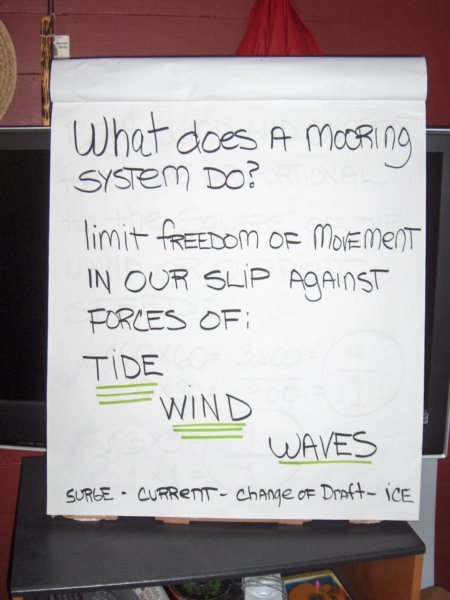 What does A mooring
system do?
limit freedom of movement
IN OUR SLIP AGAINST
FORCES OF:
TIDE
WIND
WAVES
SURGE - CURRENT - change of Draft - ICE